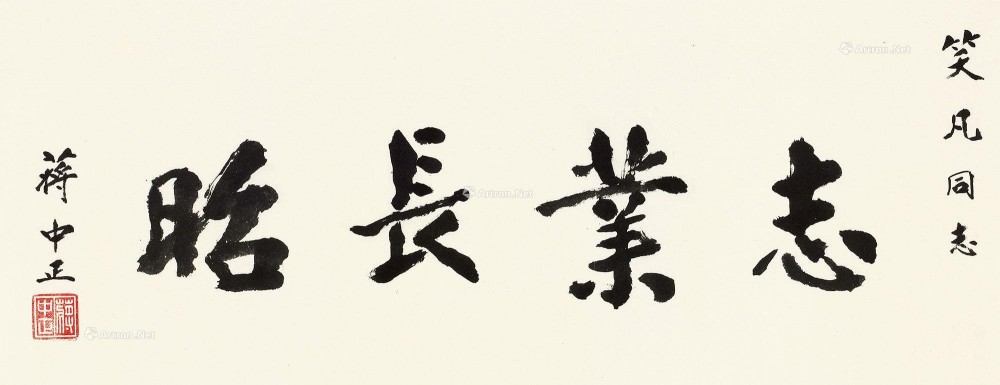 笑凡同志
志業長昭
蔣中正
蔣中正
Artron.Net
Artron.Net
Artron.Net